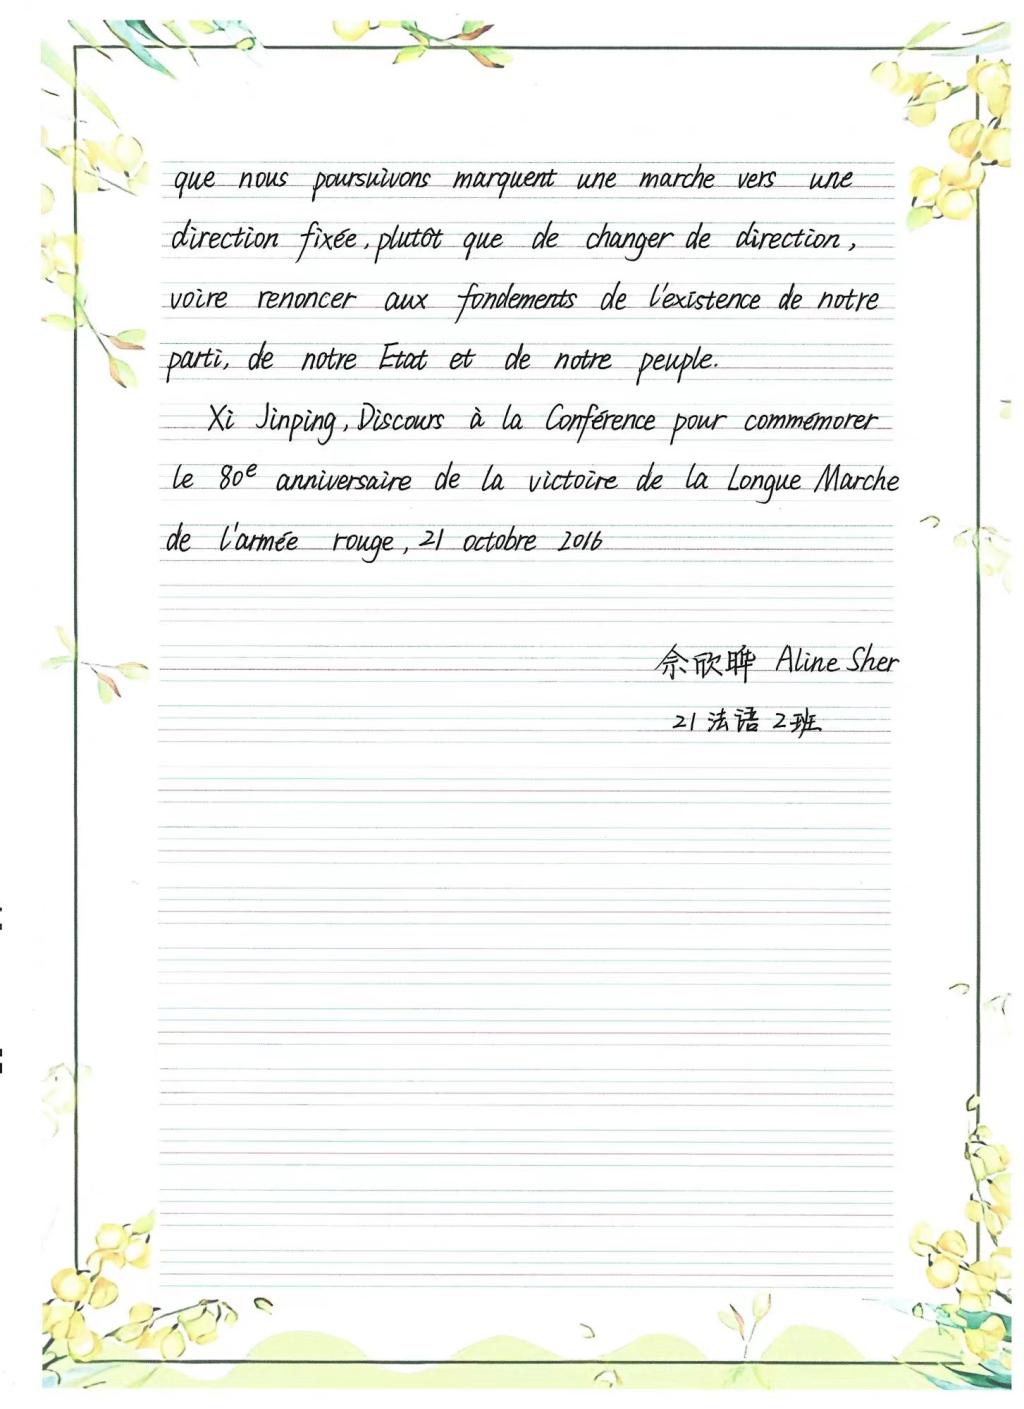 que nous poursuivons marquent une marche vers une
direction fixée, plutôt que de changer de direction,
voire renoncer aux fondements de l'existence de notre
parti, de notre Etat et de notre peuple.
Xi Jinping, Discours à la Conférence pour commémorer
le 80e anniversaire de la victoire de la Longue Marche
de l'armée rouge, 21 octobre 2016
佘欣晔 Aline Sher
21 法语 2班